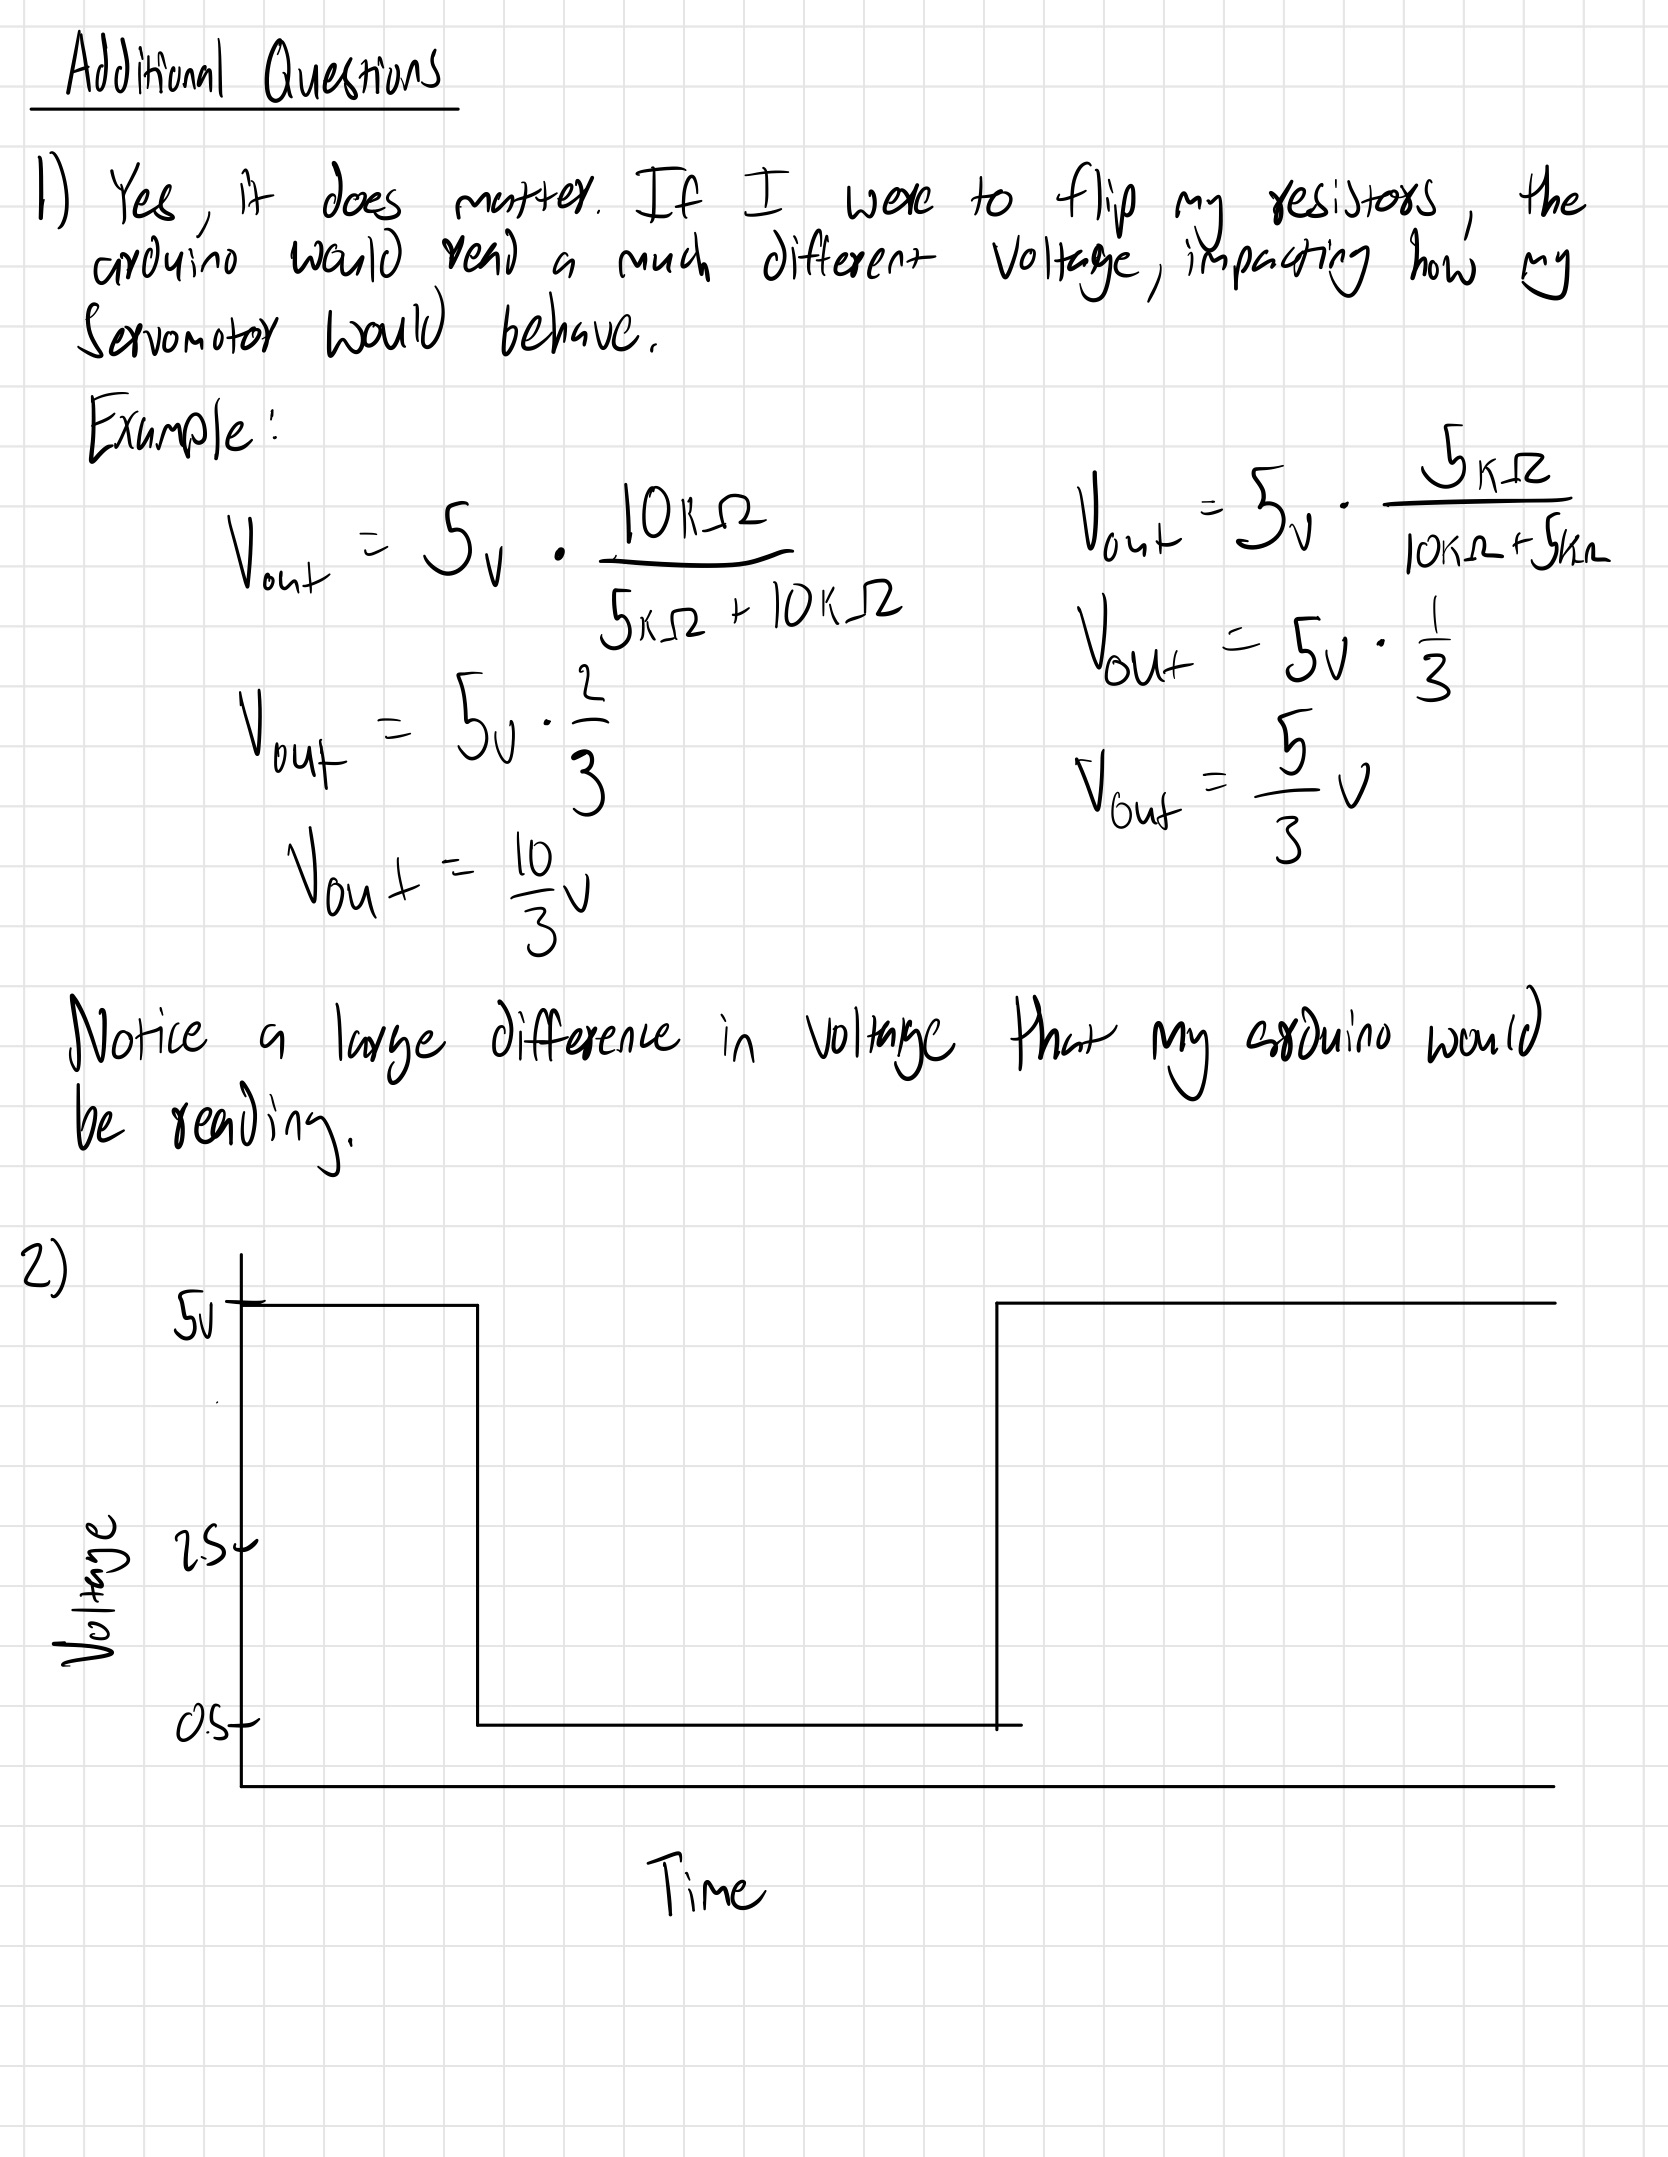 Additional Questions
1) Yes, it does matter. If I were to flip my resistors, the
arduino would read a much different voltage, impacting how my
Servomotor would behave.
Example:
Vout = 5v · 10KΩ / (5KΩ + 10KΩ)
Vout = 5v · 2/3
Vout = 10/3 v
Vout = 5v · 5KΩ / (10KΩ + 5KΩ)
Vout = 5v · 1/3
Vout = 5/3 v
Notice a large difference in voltage that my arduino would
be reading.
2)
5v
2.5
0.5
Voltage
Time